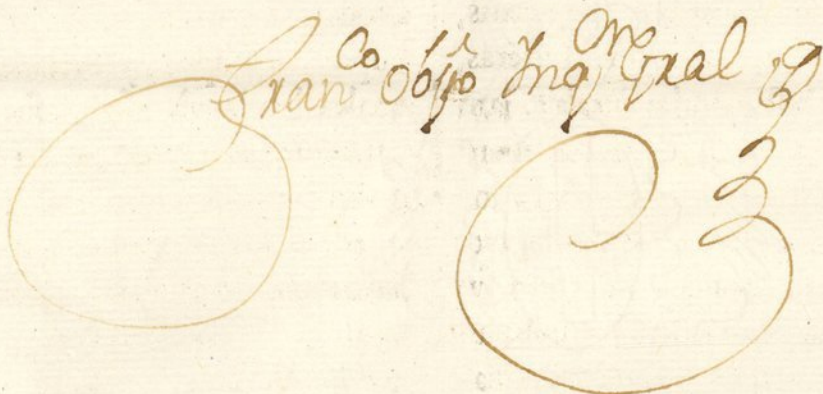 Fran^co Obpo Inq^or Gral